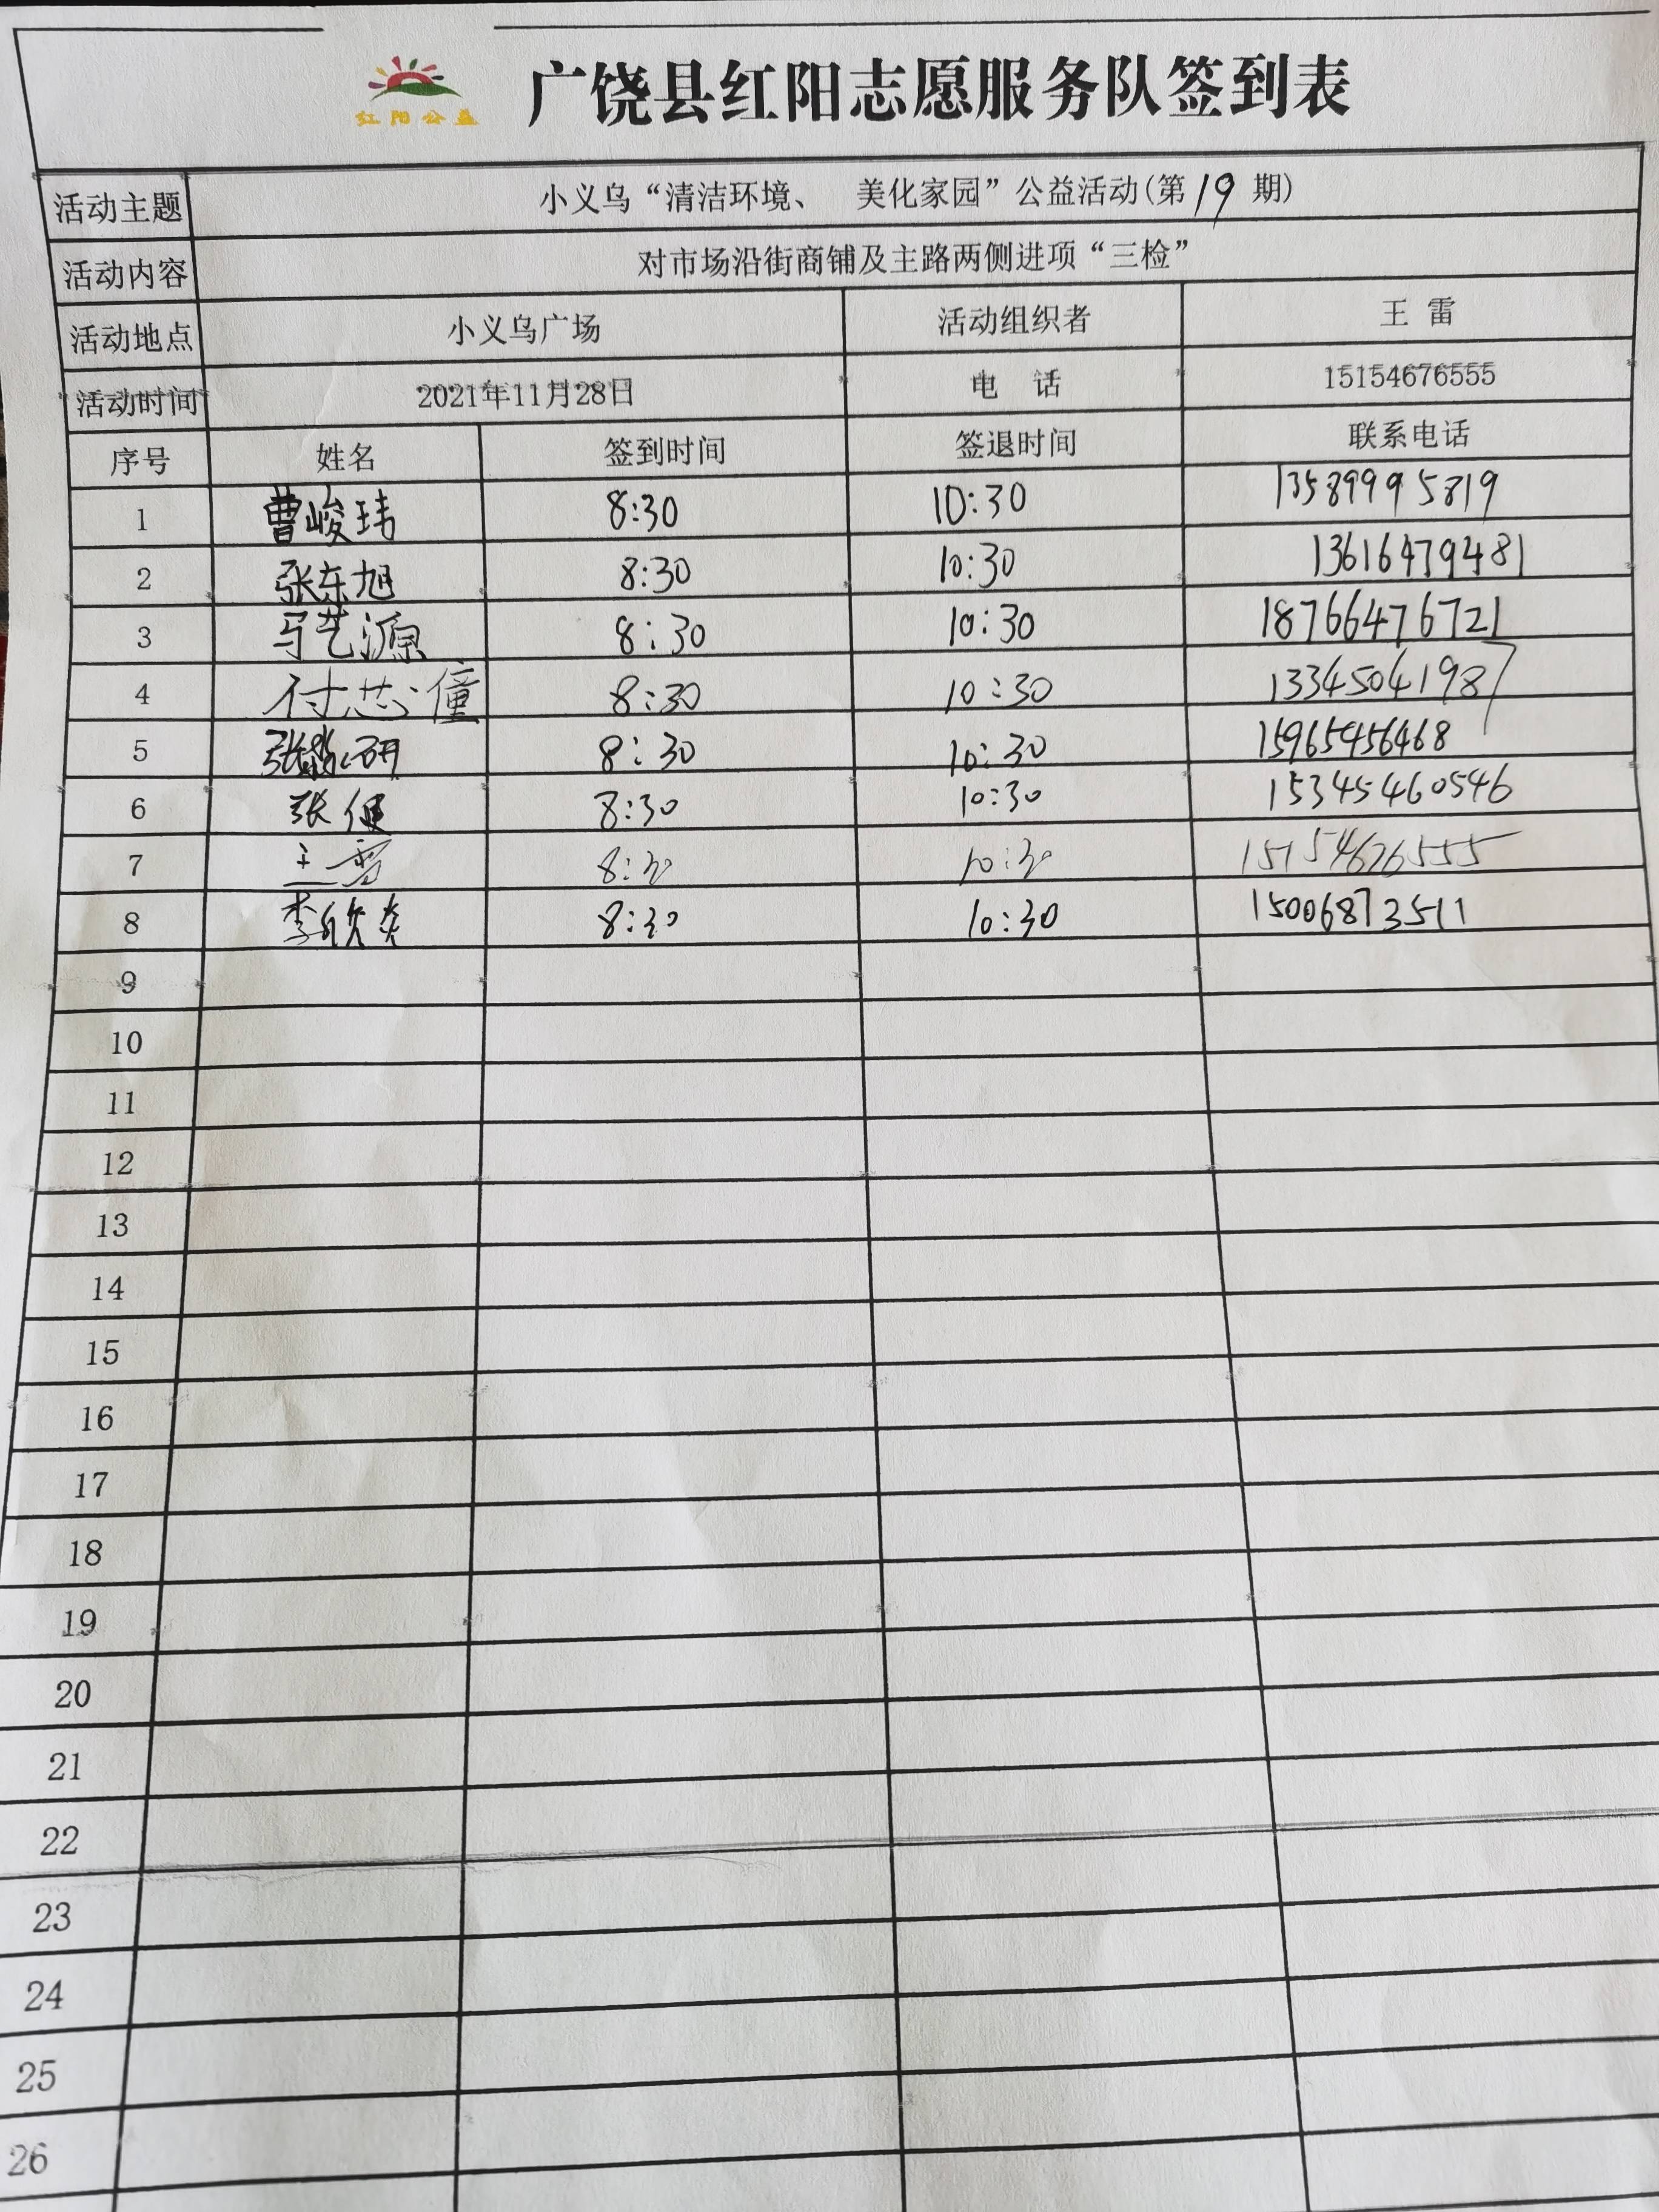 红阳公益
广饶县红阳志愿服务队签到表
活动主题 小义乌“清洁环境、 美化家园”公益活动(第19期)
活动内容 对市场沿街商铺及主路两侧进项“三检”
活动地点 小义乌广场 活动组织者 王 雷
活动时间 2021年11月28日 电 话 15154676555
序号 姓名 签到时间 签退时间 联系电话
1 曹峻玮 8:30 10:30 13589995819
2 张东旭 8:30 10:30 13616479481
3 马艺源 8:30 10:30 18766476721
4 付芯僮 8:30 10:30 13345041987
5 8:30 10:30 15965456468
6 张健 8:30 10:30 15345460546
7 王雷 8:30 10:30 15154676555
8 李欣炎 8:30 10:30 15006873511
9
10
11
12
13
14
15
16
17
18
19
20
21
22
23
24
25
26